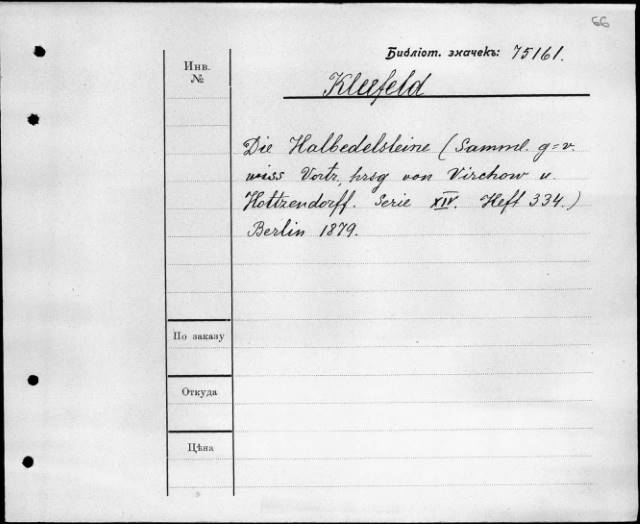 66
Библіот. значекъ: 75161.
Инв.
№
Kleefeld
Die Halbedelsteine (Samml. g=v.
wiss Vortr, hrsg von Virchow u.
Holtzendorff. Serie XIV. Heft 334.)
Berlin 1879.
По заказу
Откуда
Цѣна